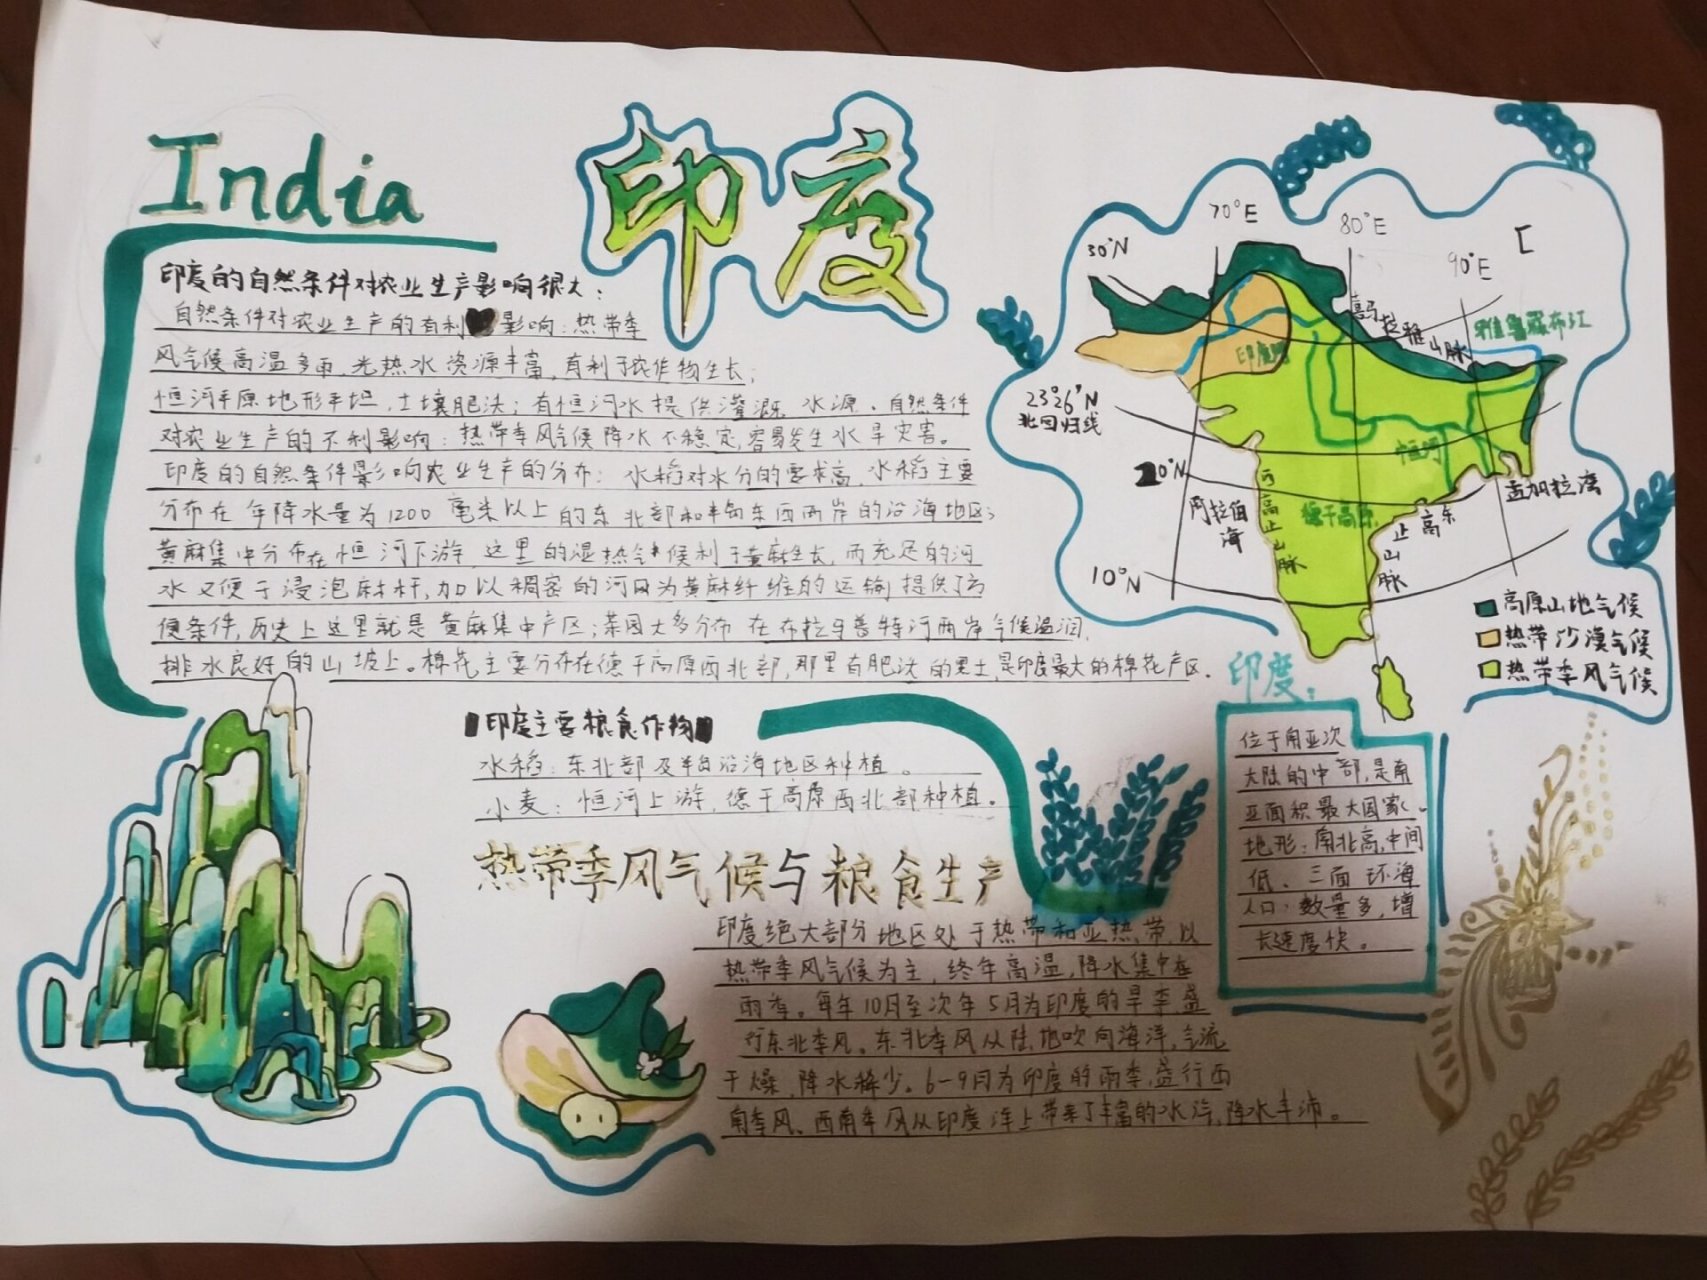 India
印度
印度的自然条件对农业生产影响很大：
自然条件对农业生产的有利影响：热带季
风气候高温多雨，光热水资源丰富，有利于农作物生长；
恒河平原地形平坦，土壤肥沃；有恒河水提供灌溉水源。自然条件
对农业生产的不利影响：热带季风气候降水不稳定，容易发生水旱灾害。
印度的自然条件影响农业生产的分布：水稻对水分的要求高，水稻主要
分布在年降水量为1200毫米以上的东北部和半岛东西两岸的沿海地区；
黄麻集中分布在恒河下游，这里的湿热气候利于黄麻生长，而充足的河
水又便于浸泡麻杆，加以稠密的河网为黄麻纤维的运输提供了方
便条件，历史上这里就是黄麻集中产区；茶园大多分布在布拉马普特河两岸气候温润，
排水良好的山坡上。棉花主要分布在德干高原西北部，那里有肥沃的黑土，是印度最大的棉花产区。
印度主要粮食作物
水稻：东北部及半岛沿海地区种植。
小麦：恒河上游，德干高原西北部种植。
热带季风气候与粮食生产
印度绝大部分地区处于热带和亚热带，以
热带季风气候为主，终年高温，降水集中在
雨季。每年10月至次年5月为印度的旱季，盛
行东北季风。东北季风从陆地吹向海洋，气流
干燥，降水稀少。6-9月为印度的雨季，盛行西
南季风。西南季风从印度洋上带来了丰富的水汽，降水丰沛。
70°E
80°E
90°E
30°N
喜马拉雅山脉
雅鲁藏布江
印度河
23°26′N
北回归线
恒河
20°N
孟加拉湾
阿拉伯海
西高止山脉
德干高原
东高止山脉
10°N
高原山地气候
热带沙漠气候
热带季风气候
印度：
位于南亚次
大陆的中部，是南
亚面积最大国家。
地形：南北高，中间
低、三面环海
人口：数量多，增
长速度快。